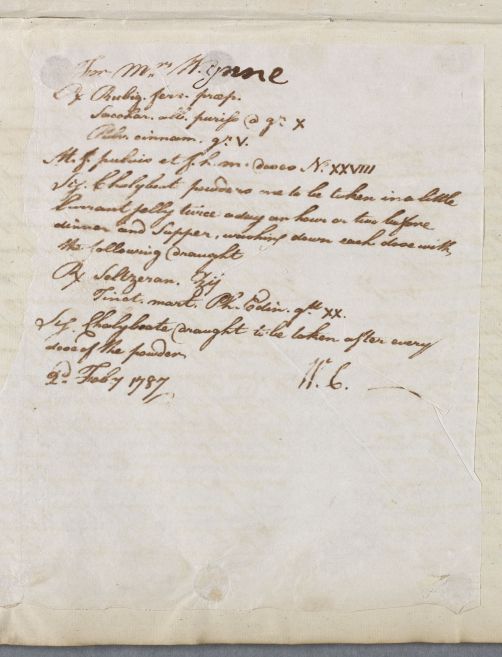 For Mrs Wynne
Rx Rubig. ferr. præp.
Sacchar. alb. puriss a gr. X
Pulv. cinnam. gr. V.
M. f. pulvis et f. h. m. doses No. XXVIII
Sig. Chalybeat powders one to be taken in a little
Currant jelly twice a day an hour or two before
dinner and Supper, washing down each dose with
the following draught
Rx Seltzeran. ℥ij
Tinct. mart. Ph. Edin. gtt XX.
Sig. Chalybeate draught to be taken after every
dose of the powder
2d Feby 1787 W. C.